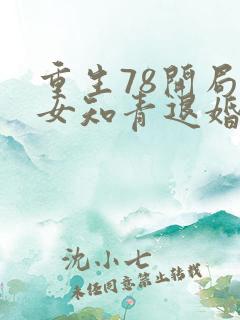 重生78开局
女知青退婚
沈小七
未经同意禁止转载